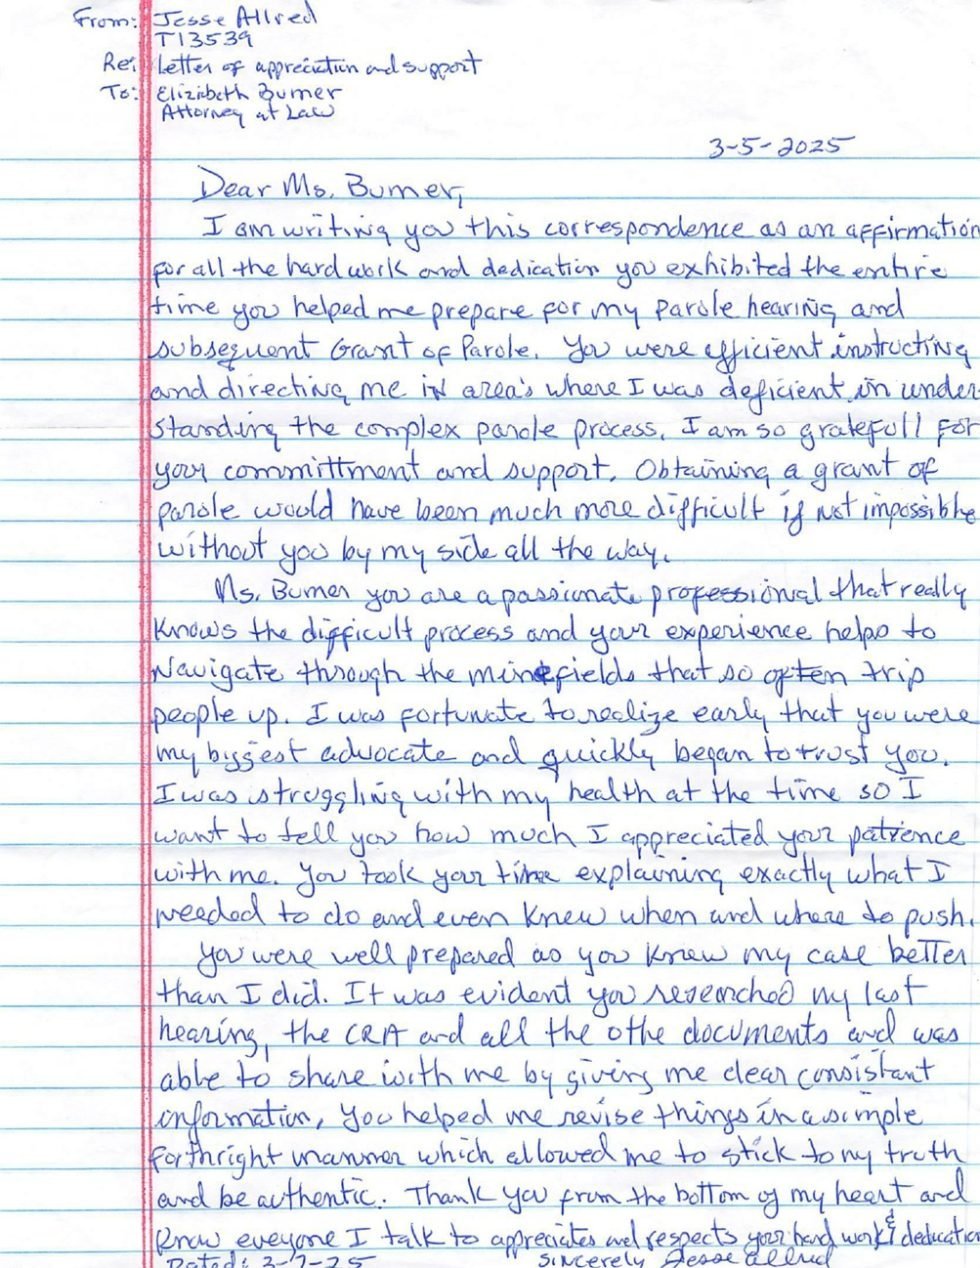 From: Jesse Allred
T13539
Re: Letter of appreciation and support
To: Elizabeth Bumer
Attorney at Law
3-5-2025
Dear Ms. Bumer,
I am writing you this correspondence as an affirmation
for all the hard work and dedication you exhibited the entire
time you helped me prepare for my parole hearing and
subsequent Grant of Parole. You were efficient instructing
and directing me in area's where I was deficient in under-
standing the complex parole process. I am so gratefull for
your committment and support. Obtaining a grant of
parole would have been much more difficult if not impossible
without you by my side all the way.
Ms. Bumer you are a passionate professional that really
knows the difficult process and your experience helps to
navigate through the minefields that so often trip
people up. I was fortunate to realize early that you were
my biggest advocate and quickly began to trust you.
I was struggling with my health at the time so I
want to tell you how much I appreciated your patience
with me. You took your time explaining exactly what I
needed to do and even knew when and where to push.
You were well prepared as you knew my case better
than I did. It was evident you researched my last
hearing, the CRA and all the othe documents and was
able to share with me by giving me clear consistant
information, You helped me revise things in a simple
forthright manner which allowed me to stick to my truth
and be authentic. Thank you from the bottom of my heart and
know everyone I talk to appreciates and respects your hard work & dedication
Dated: 3-7-25 Sincerely Jesse Allred